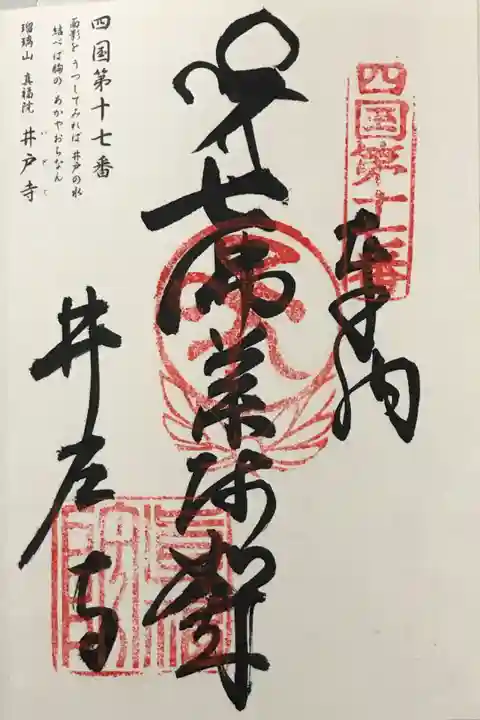 四国第十七番
奉納
七佛薬師如来
井戸寺
四国第十七番
面影を うつしてみれば 井戸の水
結べば胸の あかやおちなん
瑠璃山 真福院 井戸寺
いどじ